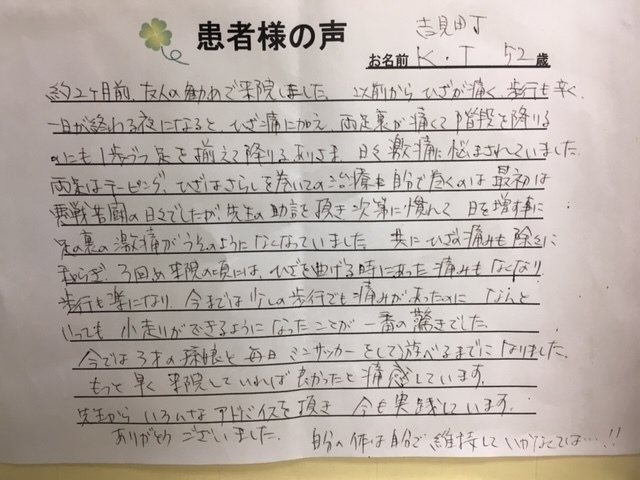 患者様の声
吉見町
お名前 K・T 52歳
約2ヶ月前、友人の勧めで来院しました。以前からひざが痛く、歩行も辛く、
一日が終わる夜になると、ひざ痛に加え、両足裏が痛くて階段を降りる
のにも1歩づつ足を揃えて降りるありさま、日々激痛に悩まされていました。
両足はテーピング、ひざはさらしを巻いての治療も自分で巻くのは最初は
悪戦苦闘の日々でしたが、先生の助言を頂き次第に慣れて 日を増す事に
足の裏の激痛がうそのようになくなっていました。共にひざの痛みも除々に
やわらぎ、3回め来院の頃には、ひざを曲げる時にあった痛みもなくなり
歩行も楽になり、今までは少しの歩行でも痛みがあったのに なんと
いっても 小走りができるようになったことが一番の驚きでした。
今では3才の孫娘と毎日ミニサッカーをして遊べるまでになりました。
もっと早く来院していれば良かったと痛感しています。
先生からいろんなアドバイスを頂き 今も実践しています。
ありがとうございました。 自分の体は自分で維持していかなくては…!!